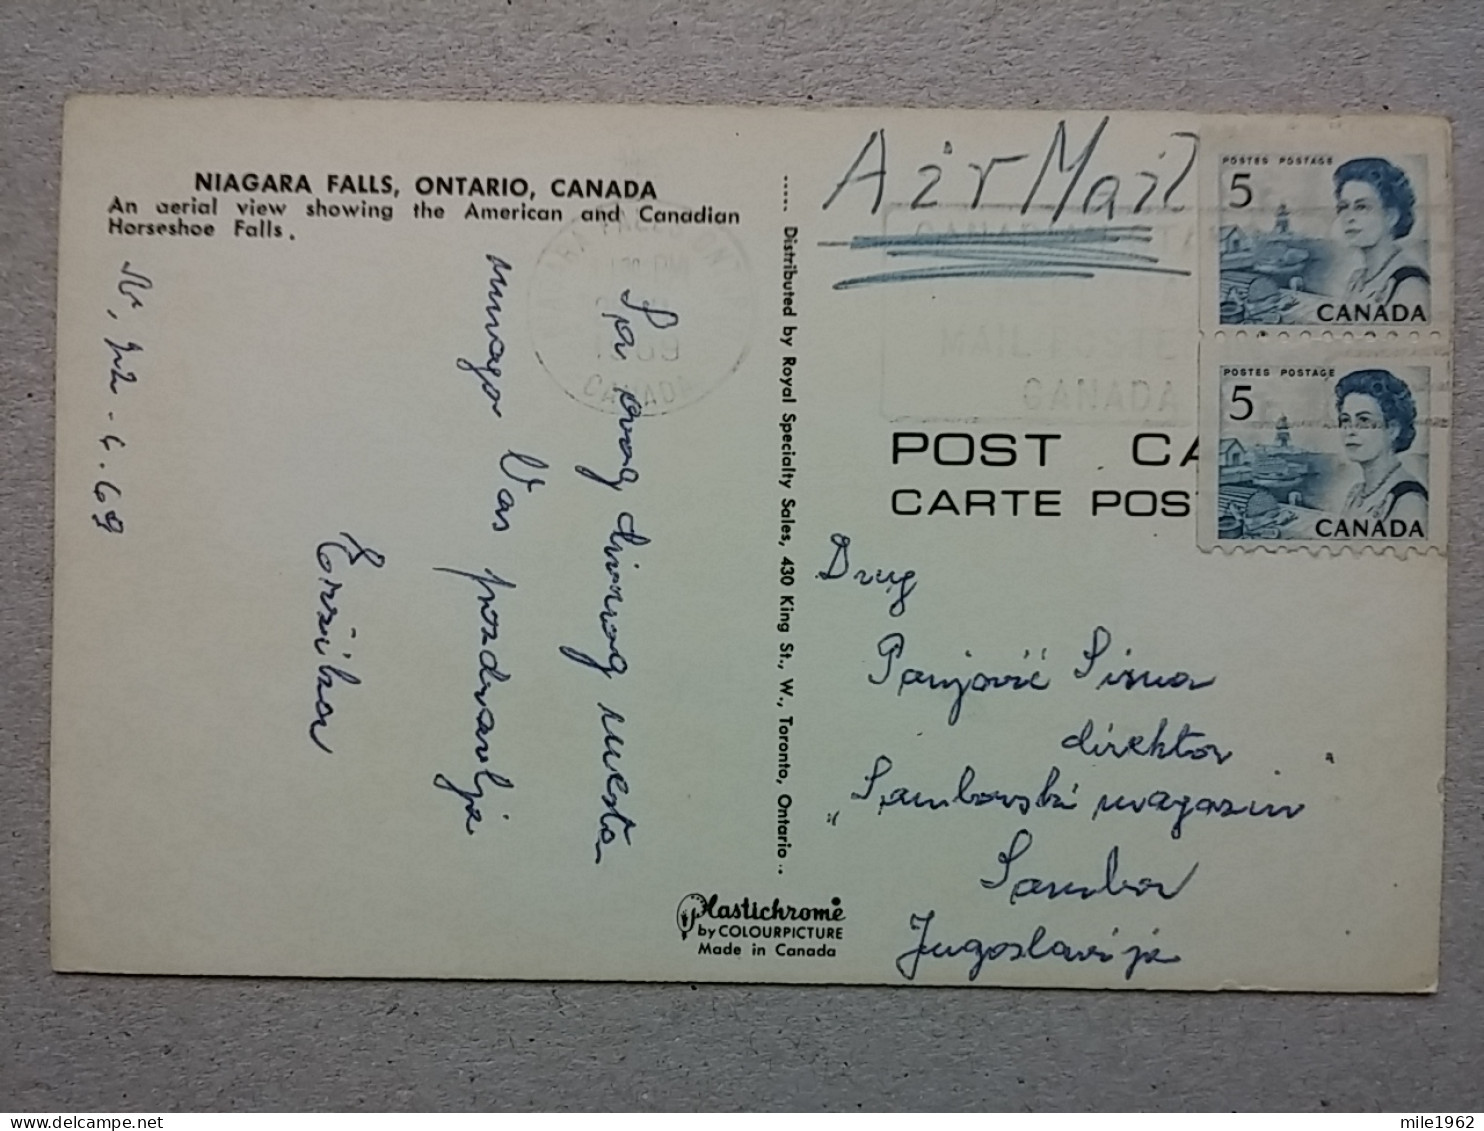 NIAGARA FALLS, ONTARIO, CANADA
An aerial view showing the American and Canadian
Horseshoe Falls.
Sa ovog divnog mesta
mnogo Vas pozdravlja
4.69
Distributed by Royal Specialty Sales, 430 King St., W., Toronto, Ontario
Plastichrome
by COLOURPICTURE
Made in Canada
Air Mail
POSTES POSTAGE
5
CANADA
POSTES POSTAGE
5
CANADA
CANADA
MAIL POSTE
CANADA
POST CA
CARTE POS
Drug
Panjović Sima
direktor
„Somborski magazin
Sombor
Jugoslavija
mile1962